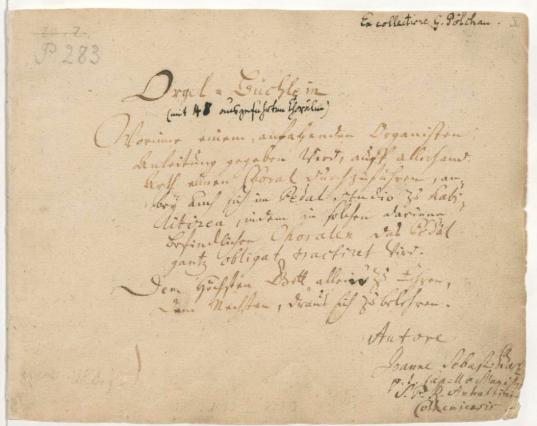 Ex collectione G. Pölchau.
P 283
Orgel-Büchlein
(mit 48 ausgeführten Chorälen)
Worinne einem anfahenden Organisten
Anleitung gegeben wird, auff allerhand
Arth einen Choral durchzuführen, an-
bey auch sich im Pedal studio zu habi-
litiren, indem in solchen darinne
befindlichen Choralen das Pedal
gantz obligat tractiret wird.
Dem Höchsten Gott allein zu Ehren,
Dem Nechsten, draus sich zu belehren.
Autore
Joanne Sebast. Bach
p. t. Capellæ Magistri
S. P. R. Anhaltini-
Cotheniensis